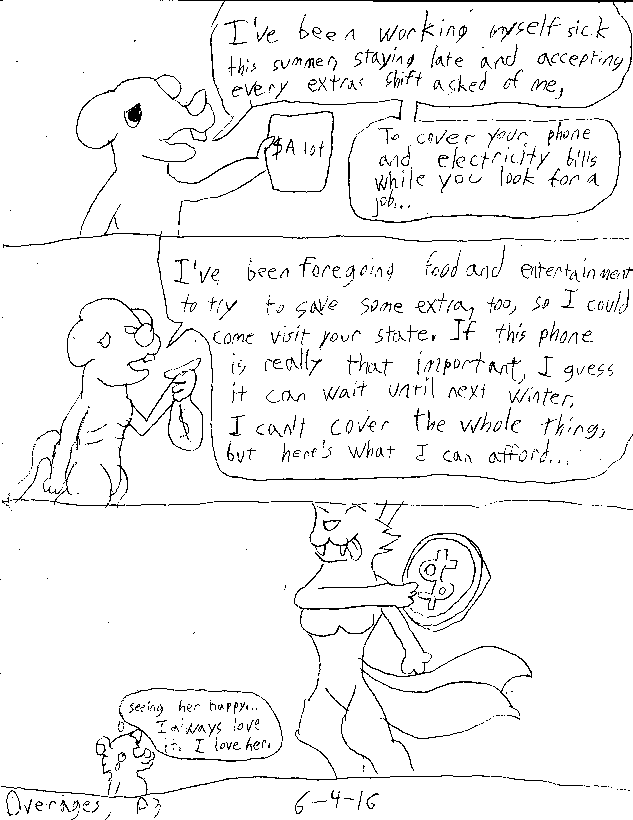 I've been working myself sick
this summer, staying late and accepting
every extra shift asked of me,
$A lot
To cover your phone
and electricity bills
while you look for a
job...
I've been foregoing food and entertainment
to try to save some extra, too, so I could
come visit your state. If this phone
is really that important, I guess
it can wait until next winter.
I can't cover the whole thing,
but here's what I can afford...
$
seeing her happy...
I always love
it. I love her.
Overages, P3
6-4-16